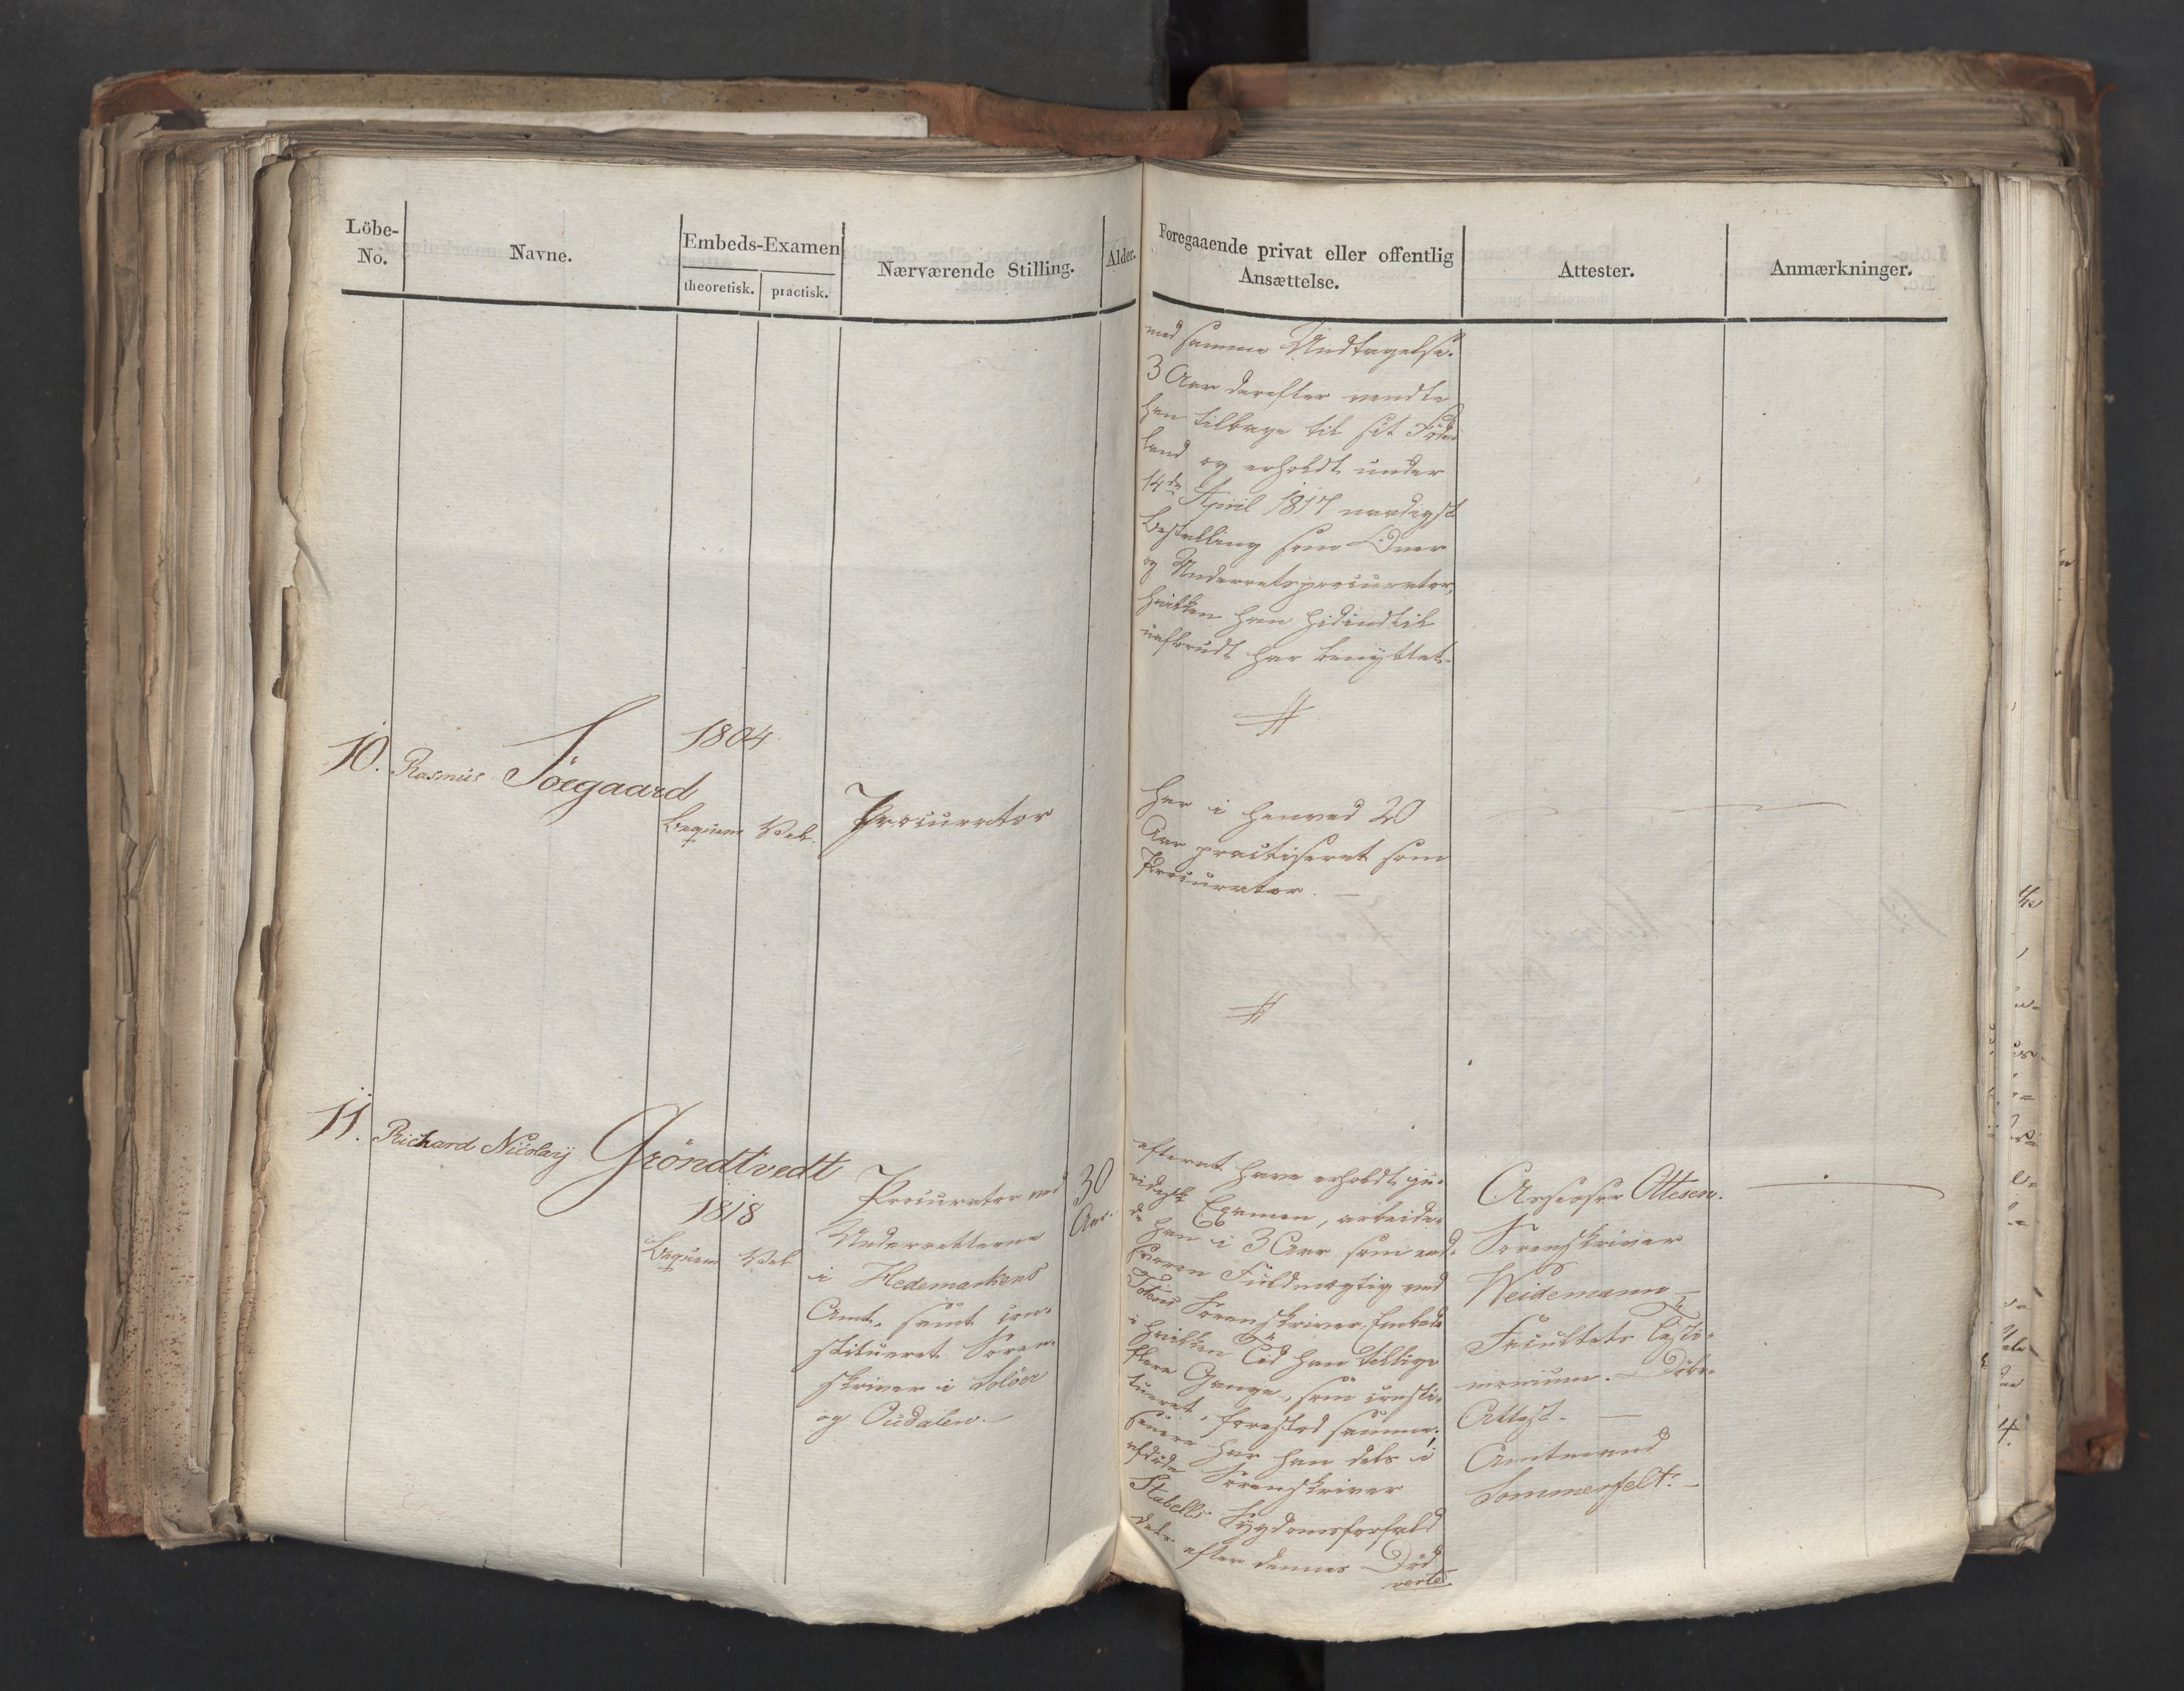 Löbe-
No.
Navne.
Embeds-Examen
theoretisk.
practisk.
Nærværende Stilling.
Alder.
Foregaaende privat eller offentlig
Ansættelse.
Attester.
Anmærkninger.
med samme Undtagelse.
3 Aar derefter vendte
han tilbage til sit Föde-
land og erholdt under
14de April 1817 naadigst
Bestalling som Over
og Underretsprocurator,
hvilken han hidindtil
uafbrudt har benyttet.
10.
Rasmus Söegaard
1804
beqvem
Vel.
Procurator
har i henved 20
Aar practiseret som
Procurator. —
11.
Richard Nicolay Gröndtvedt
1818
beqvem
Vel
Procurator ved
Underretterne
i Hedemarkens
Amt, samt con-
stitueret Soren-
skriver i Solöer
og Oudalen. —
30
Aar.
efterat have erholdt ju-
ridisk Examen, arbeide-
de han i 3 Aar som eed-
svoren Fuldmægtig ved
Totens Sorenskriver Embede
i hvilken Tid han tillige
flere Gange, som consti-
tueret, forestod samme;
senere har han dels i
afdöde Sörenskriver
Stabells Sygdomsforfald
dels efter dennes Död
verte
Assessor Ottesen.
Sorenskriver
Weidemann —
Facultets Testi-
monium. — Döbe-
Attest. —
Amtmand
Sommerfelt. —